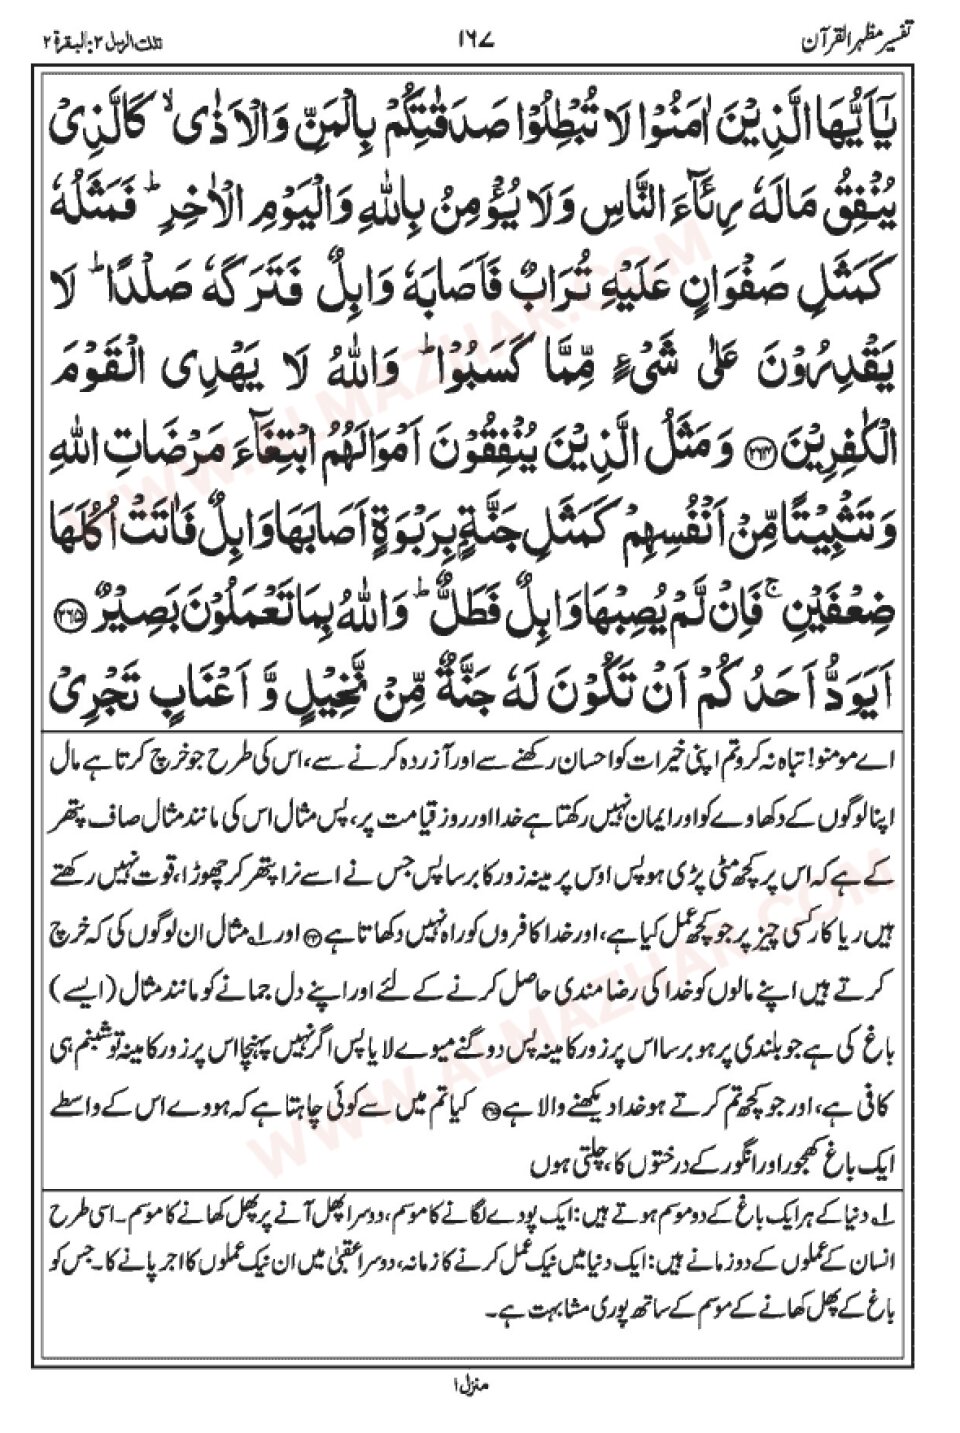 تفسیر مظہر القرآن
۱۶۷
تلک الرسل ۳: البقرة ۲
یٰۤاَیُّهَا الَّذِیْنَ اٰمَنُوْا لَا تُبْطِلُوْا صَدَقٰتِكُمْ بِالْمَنِّ وَالْاَذٰی ۙ كَالَّذِیْ
یُنْفِقُ مَالَهٗ رِئَآءَ النَّاسِ وَلَا یُؤْمِنُ بِاللهِ وَالْیَوْمِ الْاٰخِرِ ؕ فَمَثَلُهٗ
كَمَثَلِ صَفْوَانٍ عَلَیْهِ تُرَابٌ فَاَصَابَهٗ وَابِلٌ فَتَرَكَهٗ صَلْدًا ؕ لَا
یَقْدِرُوْنَ عَلٰی شَیْءٍ مِّمَّا كَسَبُوْا ؕ وَاللهُ لَا یَهْدِی الْقَوْمَ
الْكٰفِرِیْنَ ﴿۲۶۴﴾ وَمَثَلُ الَّذِیْنَ یُنْفِقُوْنَ اَمْوَالَهُمُ ابْتِغَآءَ مَرْضَاتِ اللهِ
وَتَثْبِیْتًا مِّنْ اَنْفُسِهِمْ كَمَثَلِ جَنَّةٍ بِرَبْوَةٍ اَصَابَهَا وَابِلٌ فَاٰتَتْ اُكُلَهَا
ضِعْفَیْنِ ۚ فَاِنْ لَّمْ یُصِبْهَا وَابِلٌ فَطَلٌّ ؕ وَاللهُ بِمَا تَعْمَلُوْنَ بَصِیْرٌ ﴿۲۶۵﴾
اَیَوَدُّ اَحَدُكُمْ اَنْ تَكُوْنَ لَهٗ جَنَّةٌ مِّنْ نَّخِیْلٍ وَّ اَعْنَابٍ تَجْرِیْ
اے مومنو! تباہ نہ کرو تم اپنی خیرات کو احسان رکھنے سے اور آزردہ کرنے سے، اس کی طرح جو خرچ کرتا ہے مال
اپنا لوگوں کے دکھاوے کو اور ایمان نہیں رکھتا ہے خدا اور روز قیامت پر، پس مثال اس کی مانند مثال صاف پتھر
کے ہے کہ اس پر کچھ مٹی پڑی ہو پس اوس پر مینہ زور کا برسا پس جس نے اسے نرا پتھر کر چھوڑا، قوت نہیں رکھتے
ہیں ریا کار کسی چیز پر جو کچھ عمل کیا ہے، اور خدا کافروں کو راہ نہیں دکھاتا ہے اور ۱؎ مثال ان لوگوں کی کہ خرچ
کرتے ہیں اپنے مالوں کو خدا کی رضا مندی حاصل کرنے کے لئے اور اپنے دل جمانے کو مانند مثال (ایسے)
باغ کی ہے جو بلندی پر ہو برسا اس پر زور کا مینہ پس دو گنے میوے لایا پس اگر نہیں پہنچا اس پر زور کا مینہ تو شبنم ہی
کافی ہے، اور جو کچھ تم کرتے ہو خدا دیکھنے والا ہے کیا تم میں سے کوئی چاہتا ہے کہ ہووے اس کے واسطے
ایک باغ کھجور اور انگور کے درختوں کا، چلتی ہوں
۱؎ دنیا کے ہر ایک باغ کے دو موسم ہوتے ہیں: ایک پودے لگانے کا موسم، دوسرا پھل آنے پر پھل کھانے کا موسم۔ اسی طرح
انسان کے عملوں کے دو زمانے ہیں: ایک دنیا میں نیک عمل کرنے کا زمانہ، دوسرا عقبیٰ میں ان نیک عملوں کا اجر پانے کا۔ جس کو
باغ کے پھل کھانے کے موسم کے ساتھ پوری مشابہت ہے۔
منزل ۱
WWW.ALMAZHAR.COM
WWW.ALMAZHAR.COM